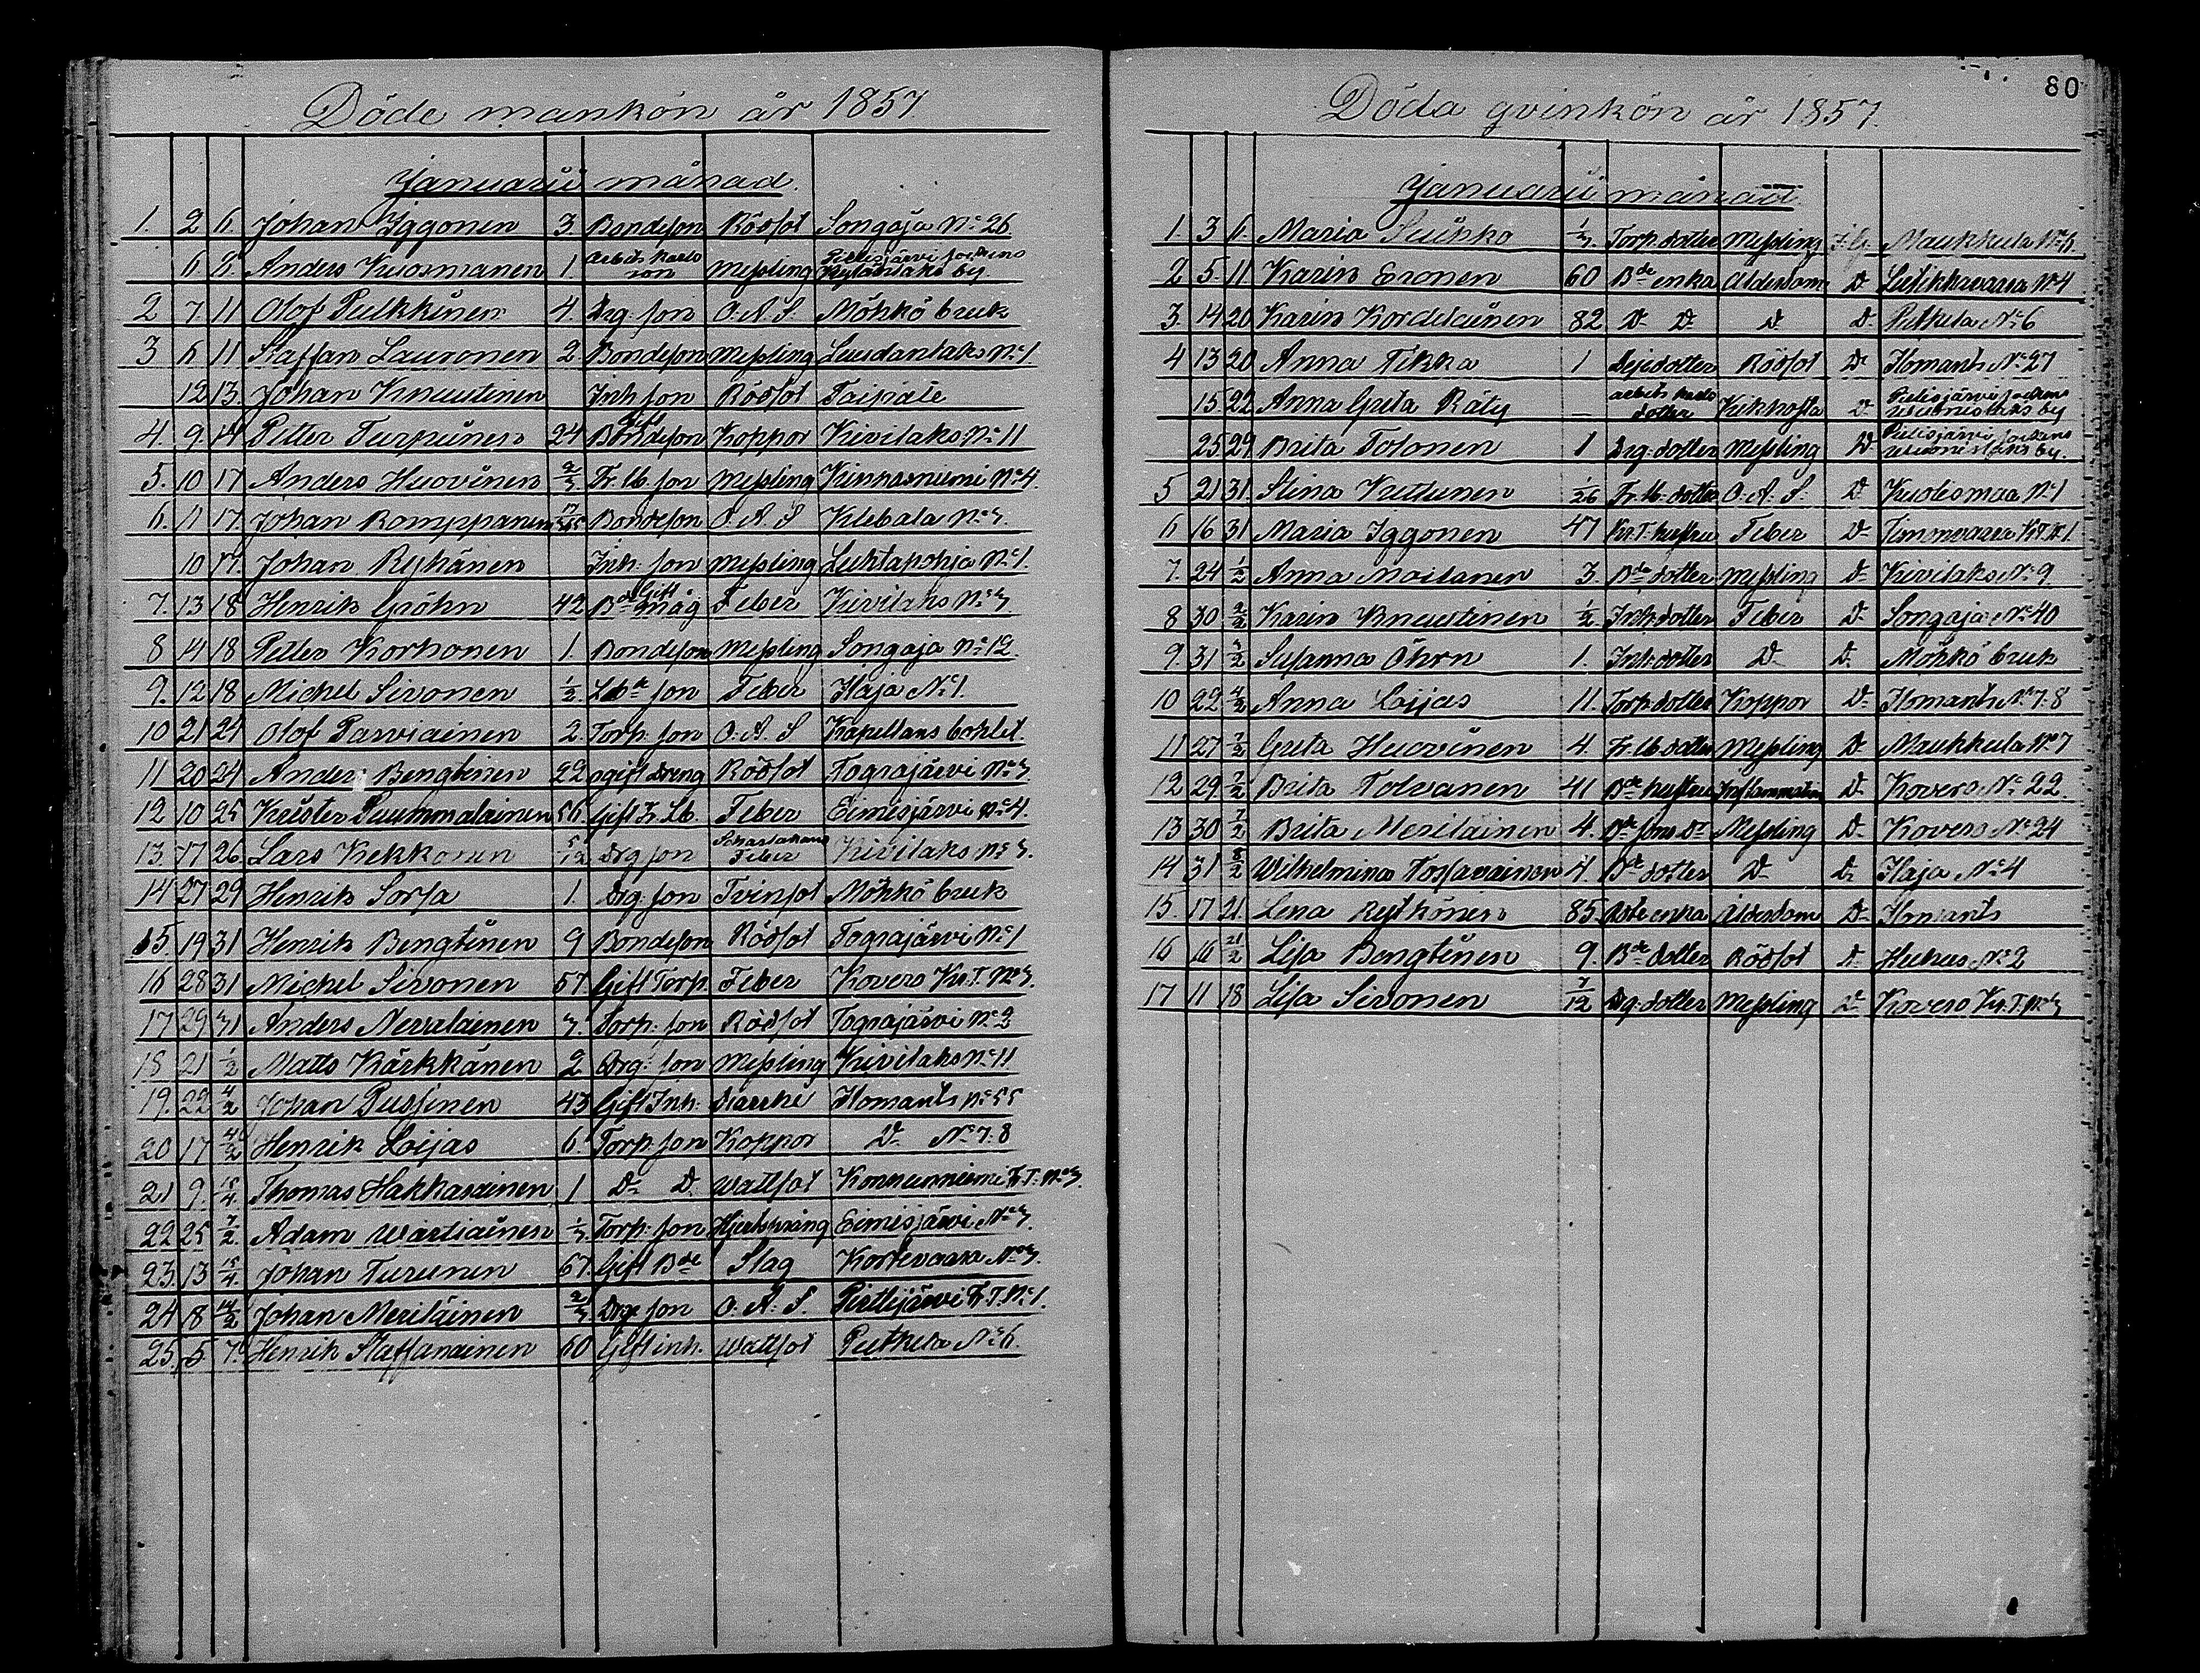 Döde mankön år 1857
Januarii månad.
1. 2 6. Johan Iggonen 3 Bondeson Rödsot Songaja No 26
6 8. Anders Kuosmanen 1 arbets karls son Messling Pielisjärvi sockens by
2 7. 11 Olof Pulkkinen 4 Drg: son O.A.S. Möhkö bruk
3 6 11 Staffan Lauronen 2 Bondeson Messling Luudanlaks No 1
12 13. Johan Knuutinen Inh son Rödsot Taipale
4. 9. 14 Petter Turpuinen 24 Gift Bondeson Koppor Kivilaks No 11
5. 10 17 Anders Huovinen 2/3 Fr. lb. son Messling Kinnasniemi No 4.
6. 11 17. Johan Romppanen Bondeson O.A.S Kelebala No 3.
10 17. Johan Ryhänen Inh: son Messling Luhtapohja No 1.
7. 13 18 Henrik Gröhn 42 Gift Bde måg Feber Kivilaks No 3.
8 14 18 Petter Korhonen 1. Bondeson Messling Songaja No 12.
9. 12 18 Michel Sivonen 1/2. Lbde son Feber Ilaja No 1.
10 21 24 Olof Parviainen 2. Torp. son O.A.S Kapellans bohlet.
11 20 24 Anders Bengtinen 22 ogift dreng Rödsot Tograjärvi No 3.
12 10 25 Krister Puummalainen 56. Gift Fr Lb. Feber Eimisjärvi No 4.
13. 17 26. Lars Kekkonen 5/12 Drg son Scharlakans Feber Kivilaks No 3.
14 27 29 Henrik Sorsa 1. Drg: son Tvinsot Möhkö bruk
15. 19 31 Henrik Bengtinen 9 Bondeson Rödsot Tograjärvi No 1
16 28 31 Michel Sivonen 57 Gift Torp. Feber Kovero Kr. T. No 3.
17 29 31 Anders Nevalainen 3. Torp: son Rödsot Tograjärvi No 2
18 21 1/2 Matts Kärkkänen 2 Drg: son Messling Kivilaks No 11
19. 22 4/2 Johan Pussinen 43 Gift Inh: Diarrhé Ilomants No 55
20 17 4/2 Henrik Loijas 6. Torp. son Koppor D- No 7.8
21 9. 15/4 Thomas Hakkarainen 1 D- D- Wattsot Konnunniemi Kr. T. No 3.
22 25 7/2 Adam Wartiainen 1/3 Torp: son Hjertspräng Eimisjärvi No 3.
23. 13 15/4 Johan Turunen 67. Gift Bde Slag Kortevaara No 3.
24 8 14/2 Johan Meriläinen 2/3 Drg son O.A.S. Pirttijärvi Kr. T. No 1.
25. 5. 7. Henrik Staffanainen 60 Gift inh. Wattsot Putkela No 6.
80
Döda qvinkön år 1857.
Januarii månad.
1. 3 6. Maria Suihko 1/3 Torp. dotter Messling Maukkula No 6.
2 5. 11 Karin Eronen 60 Bde enka Ålderdom D- Lutikkavaara No 4
3. 14 20 Karin Kordelainen 82 D- D- D- D- Putkela No 6
4 13 20 Anna Tikka 1 dotter Rödsot D- Ilomants No 27
15 22 Anna Greta Räty – arbets karls dotter Kikhosta D- Pielisjärvi sockens by
25 29 Brita Tolonen 1 Drg: dotter Messling D- Pielisjärvi sockens by.
5 21 31. Stina Kuttunen 1/26 Fr. lb. dotter O.A.S. D- Kuolismaa No 1
6 16 31 Maria Iggonen 47 Kr. T. hustru Feber D- Timmvaara Kr. T. No 1.
7. 24 1/2 Anna Moilanen 3. Bde dotter Messling D- Kivilaks No 9.
8 30 2/2 Karin Knuutinen 1/2. Inh: dotter Feber D- Songaja No 40
9. 31 7/2 Susanna Öhrn 1. Inh: dotter D- D- Möhkö bruk
10 22 4/2 Anna Loijas 11. Torp. dotter Koppor D- Ilomants No 7.8
11 27 7/2 Greta Huovinen 4. Fr. lb. dotter Messling D- Maukkula No 7
12 29 7/2 Brita Tolvanen 41 Bde hustru Inflammation D- Kovero No 22.
13 30 7/2 Brita Meriläinen 4. Bde sons Dr Messling D- Kovero No 24
14 31 8/2 Wilhelmina 4. Bde dotter D- D- Ilaja No 4
15. 17 21. Lena Rytkönen 85. enka Ålderdom D- Ilomants
16 16 21/2 Lisa Bengtinen 9. Bde dotter Rödsot D- Huhus No 2
17 11 18 Lisa Sivonen 7/12 Drg: dotter Messling D- Kovero Kr. T. No 3